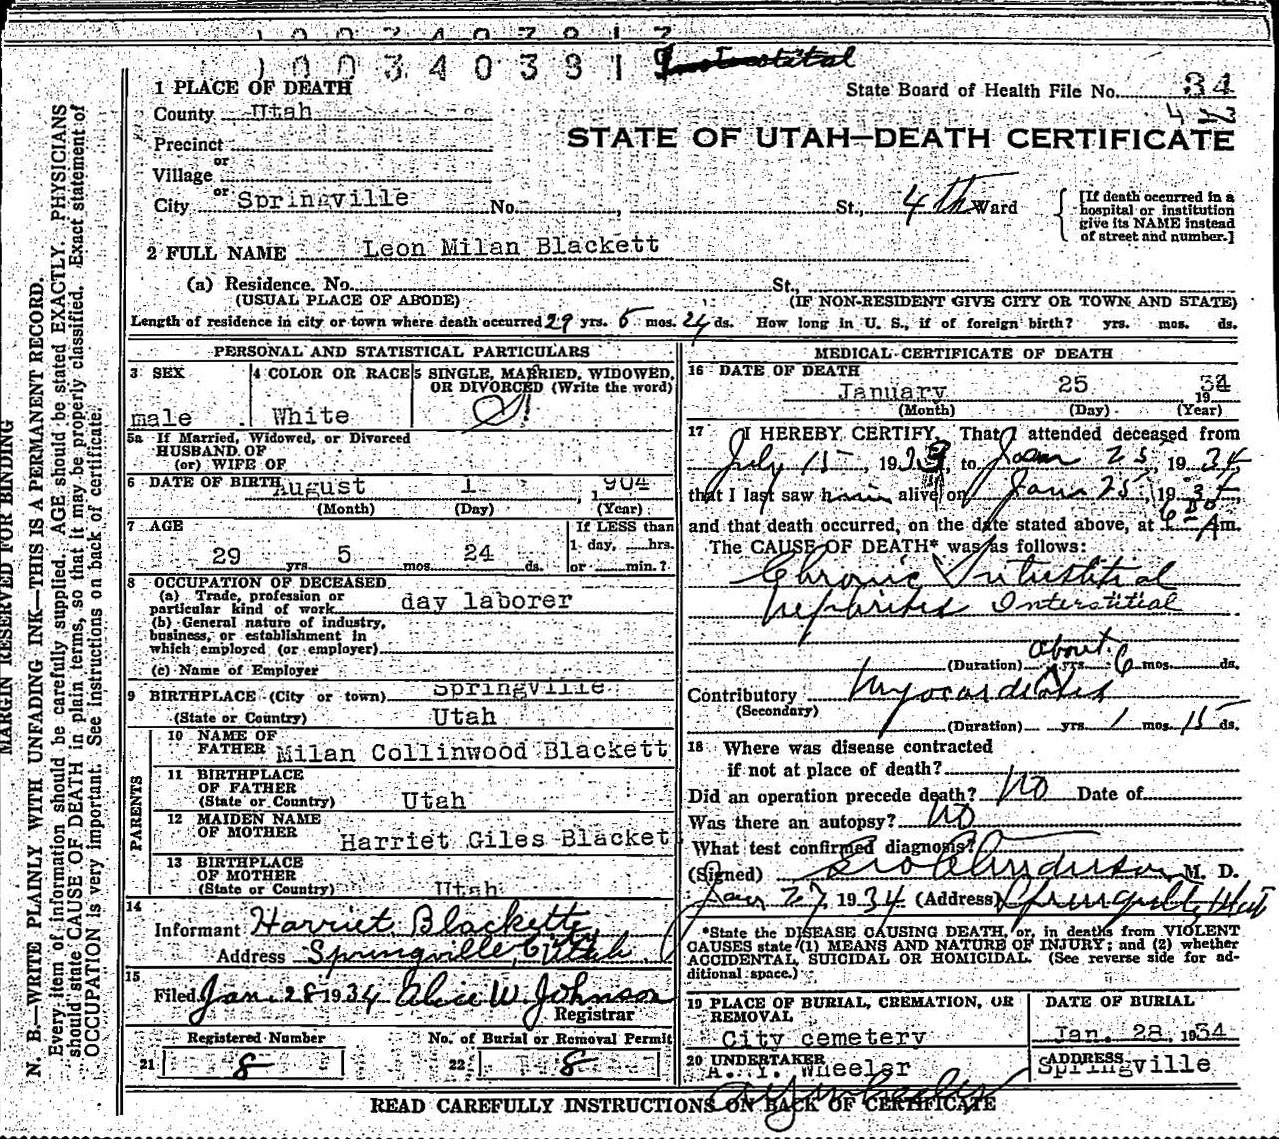 1003403919
Interstitial
1 PLACE OF DEATH
State Board of Health File No. 34
County Utah
STATE OF UTAH—DEATH CERTIFICATE
Precinct
or
Village
or
City Springville No. , St., 4th Ward
[If death occurred in a
hospital or institution
give its NAME instead
of street and number.]
2 FULL NAME Leon Milan Blackett
(a) Residence. No. St.,
(USUAL PLACE OF ABODE) (IF NON-RESIDENT GIVE CITY OR TOWN AND STATE)
Length of residence in city or town where death occurred 29 yrs. 5 mos. 24 ds. How long in U. S., if of foreign birth? yrs. mos. ds.
PERSONAL AND STATISTICAL PARTICULARS
3 SEX
male
4 COLOR OR RACE
White
5 SINGLE, MARRIED, WIDOWED,
OR DIVORCED (Write the word)
5a If Married, Widowed, or Divorced
HUSBAND OF
(or) WIFE OF
6 DATE OF BIRTH August 1 1904
(Month) (Day) (Year)
7 AGE
29 yrs. 5 mos. 24 ds.
If LESS than
1 day, hrs.
or min.?
8 OCCUPATION OF DECEASED
(a) Trade, profession or
particular kind of work day laborer
(b) General nature of industry,
business, or establishment in
which employed (or employer)
(c) Name of Employer
9 BIRTHPLACE (City or town) Springville
(State or Country) Utah
PARENTS
10 NAME OF
FATHER Milan Collinwood Blackett
11 BIRTHPLACE
OF FATHER
(State or Country) Utah
12 MAIDEN NAME
OF MOTHER Harriet Giles Blackett
13 BIRTHPLACE
OF MOTHER
(State or Country) Utah
14
Informant Harriet Blackett
Address Springville, Utah
15
Filed Jan. 28 1934 Alice W. Johnson
Registrar
Registered Number
21 8
No. of Burial or Removal Permit
22 8
MEDICAL CERTIFICATE OF DEATH
16 DATE OF DEATH
January 25 1934
(Month) (Day) (Year)
17 I HEREBY CERTIFY, That I attended deceased from
July 15, 1933, to Jan 25, 1934,
that I last saw him alive on Jan 25, 1934,
and that death occurred, on the date stated above, at 6 A m.
The CAUSE OF DEATH* was as follows:
Chronic Intustitial
Nephritis Interstitial
about
(Duration) yrs. 6 mos. ds.
Contributory Myocarditis
(Secondary)
(Duration) yrs. 1 mos. 15 ds.
18 Where was disease contracted
if not at place of death?
Did an operation precede death? No Date of
Was there an autopsy? No
What test confirmed diagnosis?
(Signed) Geo Anderson, M. D.
Jan 27, 1934 (Address) Springville Utah
*State the DISEASE CAUSING DEATH, or, in deaths from VIOLENT
CAUSES state (1) MEANS AND NATURE OF INJURY; and (2) whether
ACCIDENTAL, SUICIDAL OR HOMICIDAL. (See reverse side for ad-
ditional space.)
19 PLACE OF BURIAL, CREMATION, OR
REMOVAL
City cemetery
DATE OF BURIAL
Jan. 28, 1934
20 UNDERTAKER
A. Y. Wheeler
A Y Wheeler
ADDRESS
Springville
READ CAREFULLY INSTRUCTIONS ON BACK OF CERTIFICATE
MARGIN RESERVED FOR BINDING
N. B.—WRITE PLAINLY WITH UNFADING INK—THIS IS A PERMANENT RECORD.
Every item of information should be carefully supplied. AGE should be stated EXACTLY. PHYSICIANS
should state CAUSE OF DEATH in plain terms, so that it may be properly classified. Exact statement of
OCCUPATION is very important. See instructions on back of certificate.